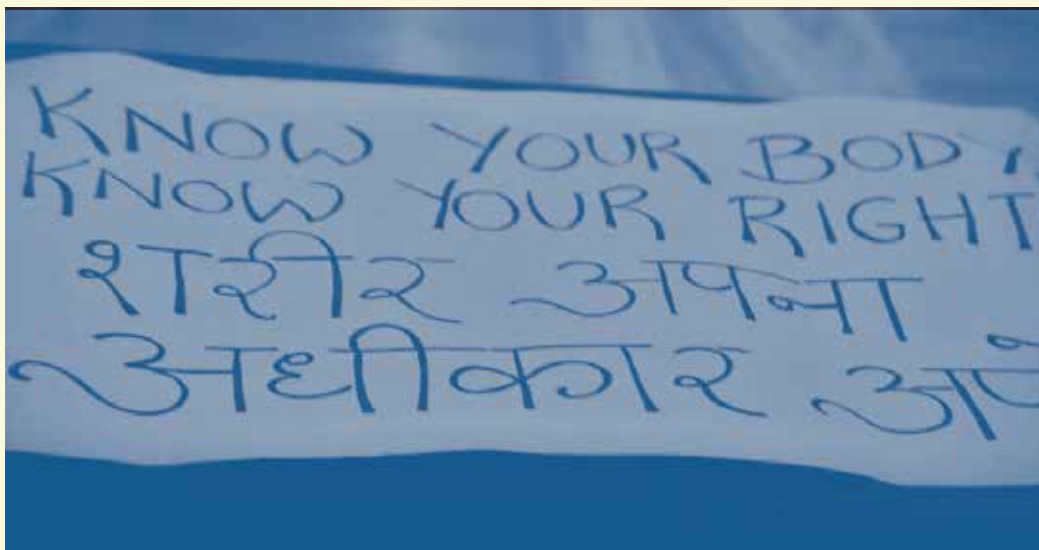 KNOW YOUR BODY,
KNOW YOUR RIGHT
शरीर अपना
अधीकार